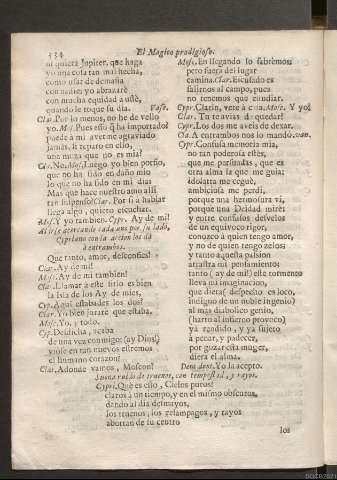 334
El Magico prodigioso.
ni quiera Jupiter, que haga
yo una cosa tan mal hecha,
como usar de demasia
con nadie; yo abrazarè
con mucha equidad a usté,
quando le toque su dia. Vase.
Clar. Por lo menos, no he de vello
yo. Mos. Pues esso què ha importado?
puede à mi averme agraviado
jamàs, si reparo en ello,
una moza que no es mia?
Cla. No. Mosc. Luego yo bien porfio,
que no ha sido en daño mio
lo que no ha sido en mi dia:
Mas que hace nuestro amo alli
tan suspenso? Clar. Por si à hablar
llega algo, quiero escuchar.
Mosc. Y yo tambien. Cypr. Ay de mi!
Al irse acercando cada uno por su lado,
Cypriano con la accion los dà
à entrambos.
Que tanto, amor, desconfies!
Clar. Ay de mi!
Mosc. Ay de mi tambien!
Cla. Llamar à este sitio es bien
la Isla de los Ay de mies.
Cyp. Aqui estabades los dos?
Clar. Yo bien jurarè que estaba.
Mosc. Yo, y todo.
Cyp. Desdicha, acaba
de una vez conmigo: (ay Dios!)
viòse en tan nuevos estremos
el humano corazon?
Clar. Adonde vamos, Moscon?
Mosc. En llegando lo sabrèmos;
pero fuera del lugar
camina. Clar. Escusado es
salirnos al campo, pues
no tenemos que estudiar.
Cypr. Clarin, vete à casa. Mosc. Y yo?
Clar. Tu te avias de quedar?
Cypr. Los dos me aveis de dexar.
Cla. A entrambos nos lo mandò. vans.
Cypr. Confusa memoria mia,
no tan poderosa estès,
que me persuadas, que es
otra alma la que me guia:
idolatra me ceguè,
ambicioso me perdi,
porque una hermosura vi,
porque una Deidad mirè:
y entre confusos desvelos
de un equivoco rigor,
conozco à quien tengo amor,
y no de quien tengo zelos;
y tanto aquesta passion
arrastra mi pensamiento;
tanto (ay de mi!) este tormento
lleva mi imaginacion,
que diera( despecho es loco,
indigno de un noble ingenio)
al mas diabolico genio,
(harto al infierno provoco)
yà rendido, y yà sujeto
à penar, y padecer,
por gozar esta muger,
diera el alma.
Dem. dent. Yo la acepto.
Suena ruido de truenos, con tempestad, y rayos.
Cypr. Què es esto, Cielos puros!
claros à un tiempo, y en el mismo obscuros,
dando al dia desmayos,
los truenos, los relampagos, y rayos
abortan de su centro
los